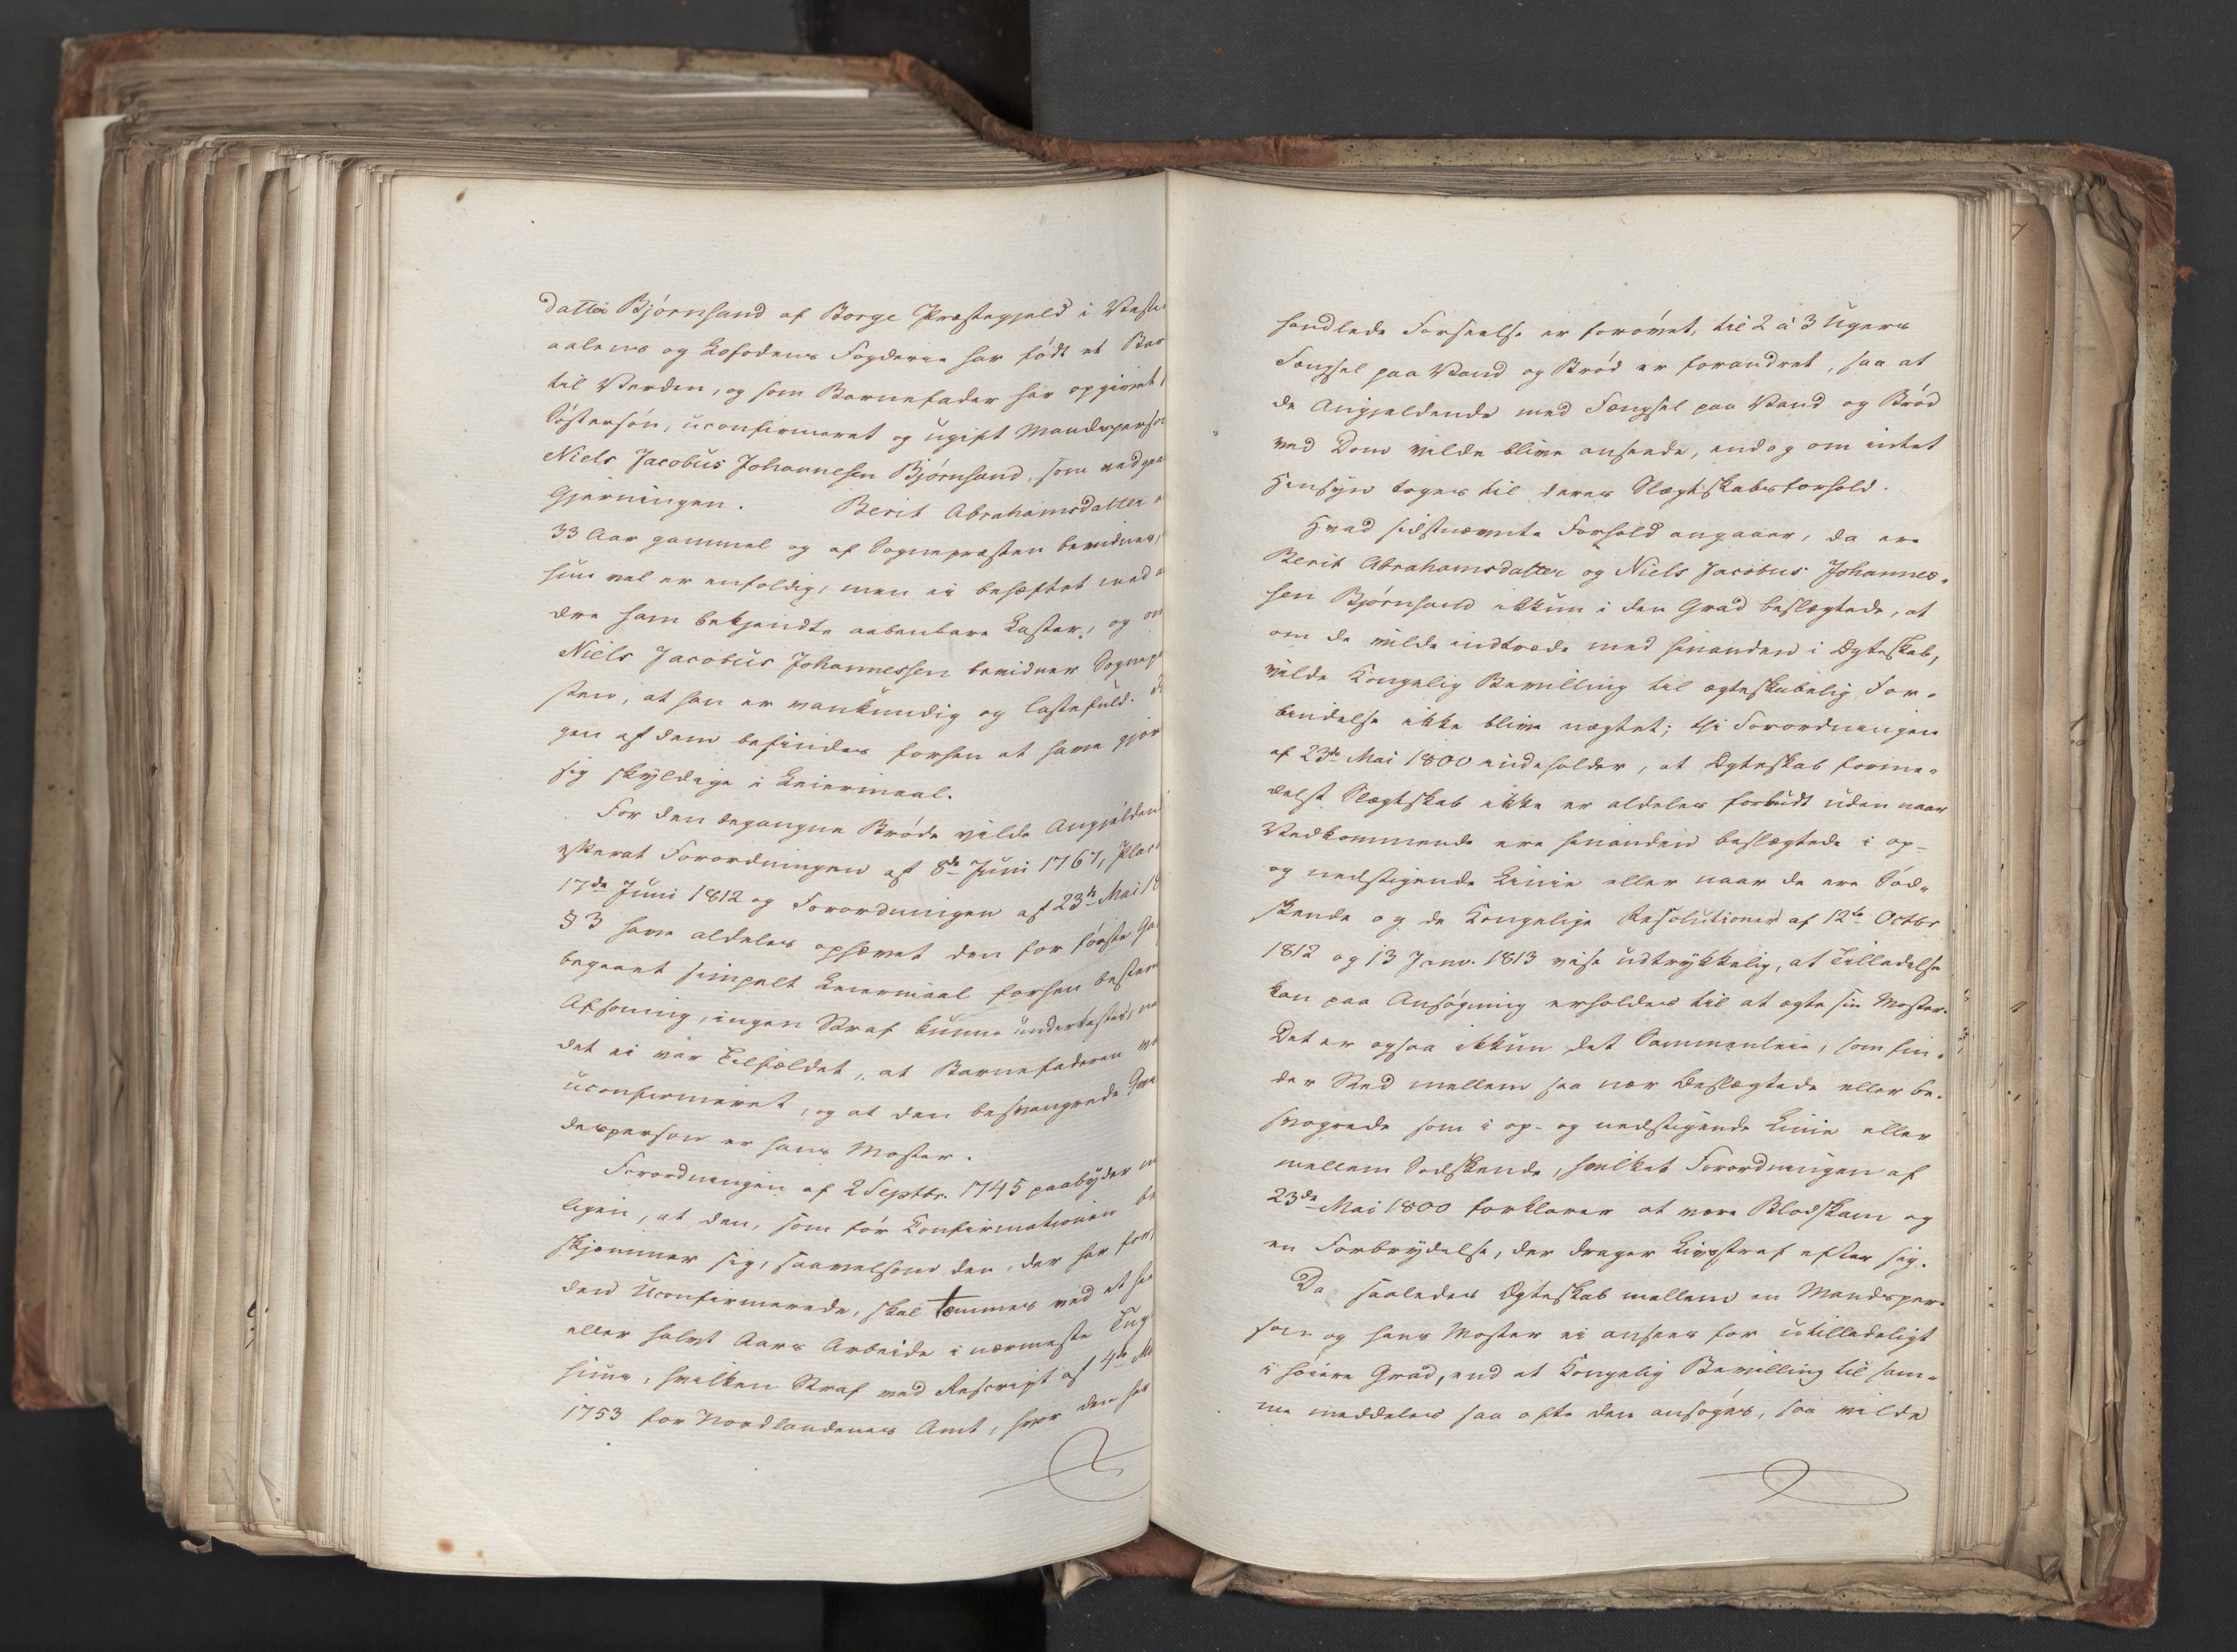 datter Bjørnsand af Borge Præstegjeld i Veste
aalens og Lofodens Fogderie har født et Bar
til Verden, og som Barnefader har opgivet
Søstersøn, uconfirmeret og ugift Mandsperson
Niels Jacobus Johannesen Bjørnsand, som vedgaa
Gjerningen. Berit Abrahamsdatter e
33 Aar gammel og af Sognepræsten bevidnes,
hun vel er enfoldig, men ei behæftet med a
dre ham bekjendte aabenbare Laster, og om
Niels Jacobus Johannessen bevidner Sognepr
sten, at han er vankundig og lastefuld.
gen af dem befindes forhen at have gjor
sig skyldige i Leiermaal.
For den begangne Brøde vilde Angjelden
efterat Forordningen af 8de Juni 1767, Plac
17de Juni 1812 og Forordningen af 23de Mai 18
§ 3 have aldeles ophævet den for første Ga
begaaet simpelt Leiermaal forhen bestem
Afsoning, ingen Straf kunne underkastes, na
det ei var Tilfældet, at Barnefaderen va
uconfirmeret, og at den besvangrede Qvin
desperson er hans Moster.
Forordningen af 2 Septbr. 1745 paabyder
ligen, at den, som før Confirmationen be
skjemmer sig, saavelsom den, der har for
den Uconfirmerede, skal tæmmes ved et he
eller halvt Aars Arbeide i nærmeste Tug
huus, hvilken Straf ved Rescript af 4de Ma
1753 for Nordlandenes Amt, hvor den her
handlede Forseelse er forøvet, til 2 à 3 Ugers
Fængsel paa Vand og Brød er forandret, saa at
de Angjeldende med Fængsel paa Vand og Brød
ved Dom vilde blive anseede, endog om intet
Hensyn toges til deres Slægtskabsforhold.
Hvad sidstnævnte Forhold angaaer, da ere
Berit Abrahamsdatter og Niels Jacobus Johannes-
sen Bjørnsand ikkun i den Grad beslægtede, at
om de vilde indtræde med hinanden i Ægteskab,
vilde Kongelig Bevilling til ægteskabelig For-
bindelse ikke blive nægtet; thi Forordningen
af 23de Mai 1800 indeholder, at Ægteskab forme-
delst Slægtskab ikke er aldeles forbudt uden naar
Vedkommende ere hinanden beslægtede i op-
og nedstigende Linie eller naar de ere Sød-
skende og de Kongelige Resolutioner af 12te Octbr
1812 og 13 Janv. 1813 vise udtrykkelig, at Tilladelse
kan paa Ansøgning erholdes til at ægte sin Moster.
Det er ogsaa ikkun det Sammenleie, som fin-
der Sted mellem saa nær Beslægtede eller be-
svogrede som i op- og nedstigende Linie eller
mellem Sødskende, hvilket Forordningen af
23de Mai 1800 forklarer at være Blodskam og
en Forbrydelse, der drager Livsstraf efter sig.
Da saaledes Ægteskab mellem en Mandsper-
son og hans Moster ei ansees for utilladeligt
i høiere Grad, end at Kongelig Bevilling til sam-
me meddeles saa ofte den ansøges, saa vilde